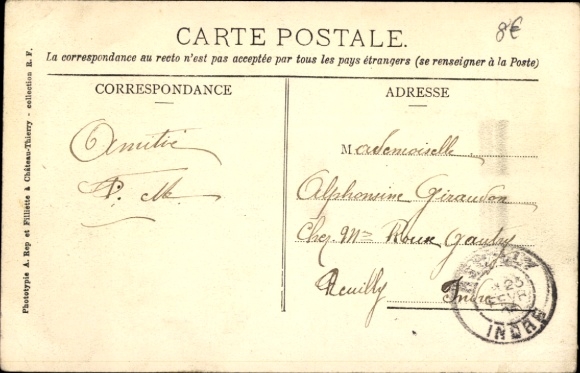 8€
CARTE POSTALE.
La correspondance au recto n'est pas acceptée par tous les pays étrangers (se renseigner à la Poste)
CORRESPONDANCE
Amitié
P. M.
ADRESSE
Mademoiselle
Alphonsine Giraudon
Chez Mme Roux Gaudry
Reuilly Indre
23
INDRE
Phototypie A. Rep et Filliette à Château-Thierry - collection R. F.